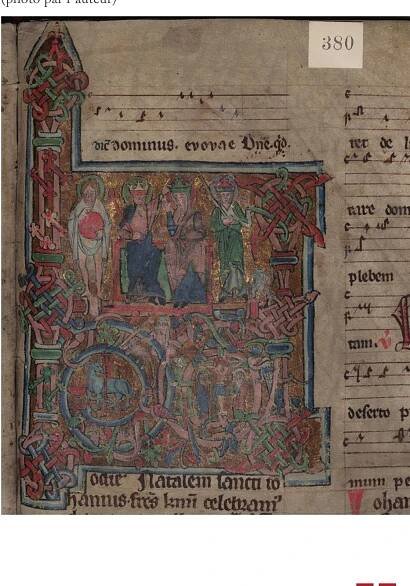 (photo par l'auteur)
380
dominus. evovae
ter de
tare dom
plebem
tam.
deserto p
mum pe
ohan
odie Natalem sancti io
hannis fres kmi celebram